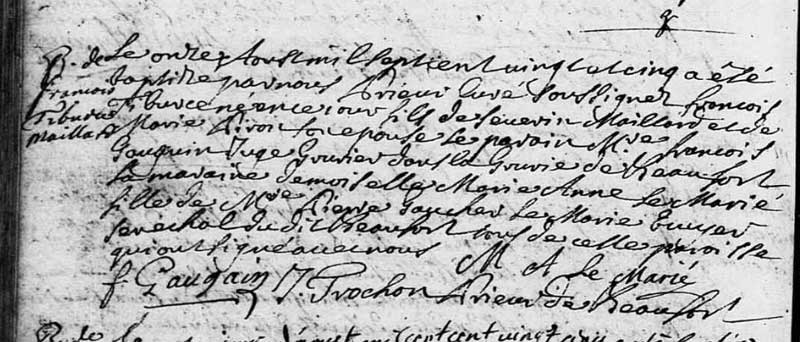 B. de
François
Tiburce
Maillard
Le onze aoust mil sept cent vingt et cinq a été
baptizé par nous Prieur Curé soussigné François
Tiburce né ance jour fils de Severin Maillard et de
Marie son epouse le parain Mre François
Gauguin Juge Gruier dans la Grurie de Beaufort
la maraine demoiselle Marie Anne Le Marié
fille de Mre Pierre Gaucher Le Marie Ecuyer
senechal du dit Beaufort tous de celle paroisse
qui ont signé avec nous
M A Le Marié
f Gaugain
Trochon Prieur de Beaufort